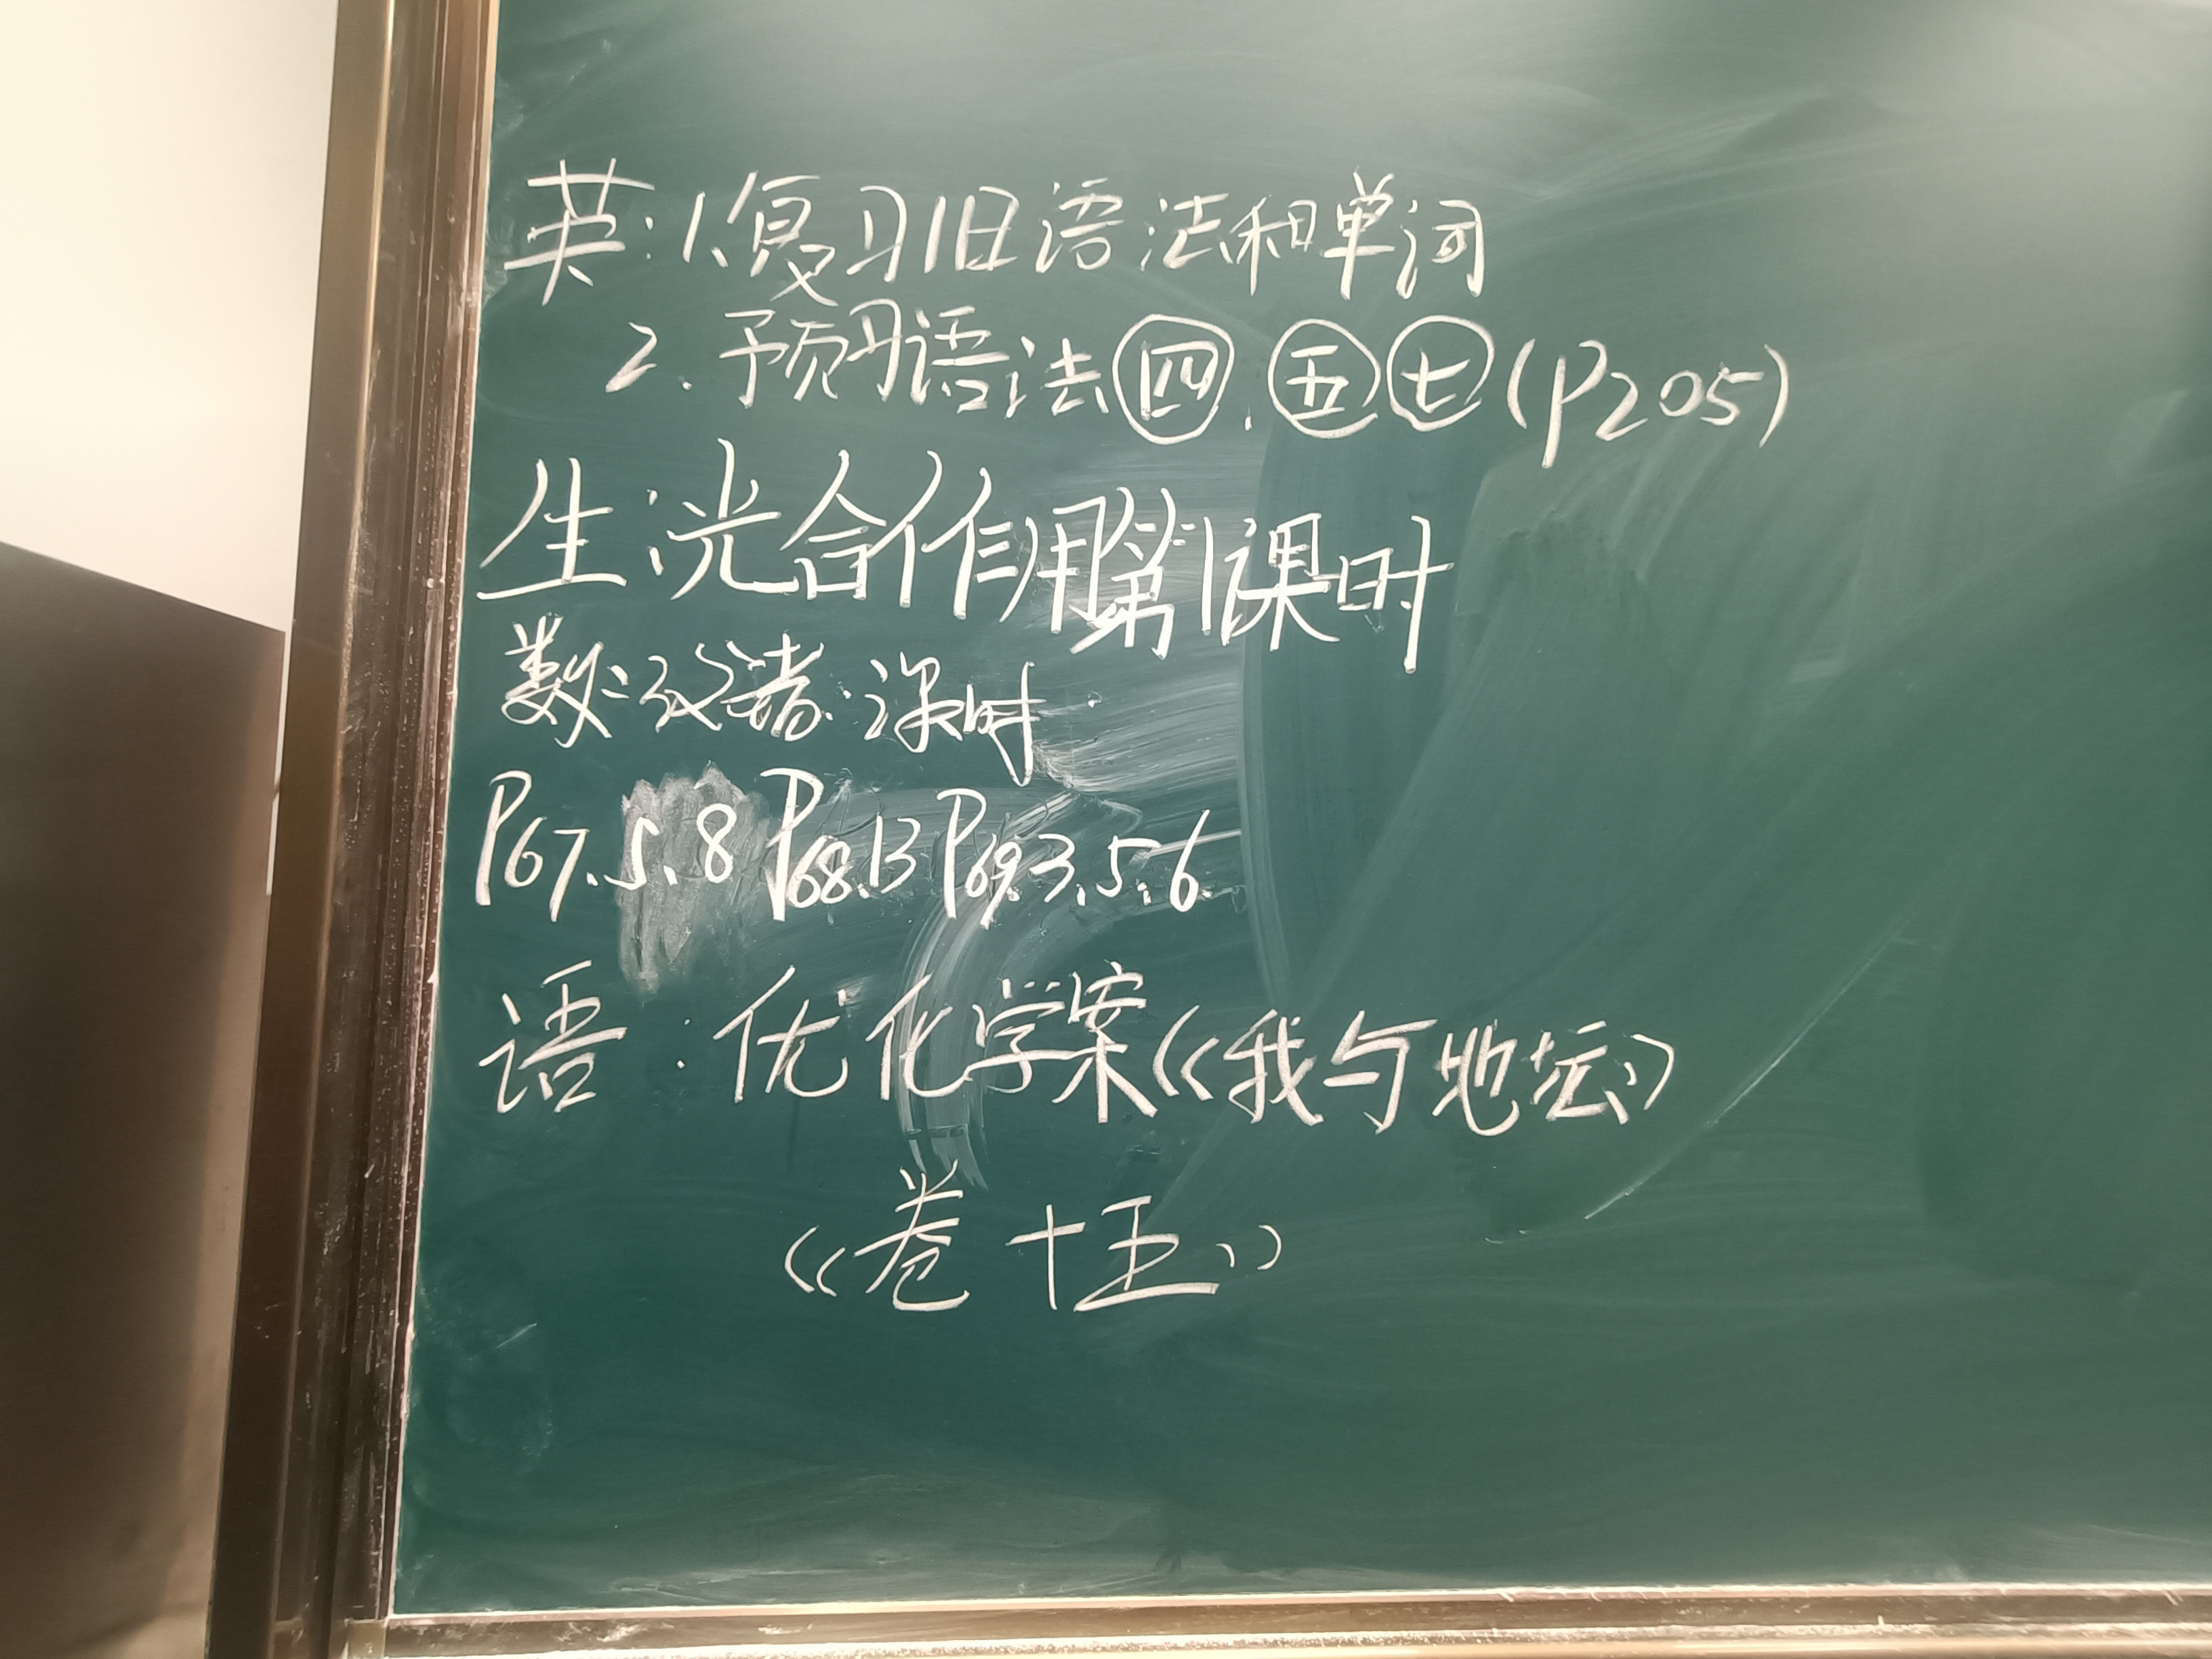 英:1.复习旧语法和单词
2.预习语法四.五七(P205)
生:光合作用第1课时
数:改错.课时
P67.5.8 P68.13 P69.3.5.6
语:优化学案《我与地坛》
《卷十五》